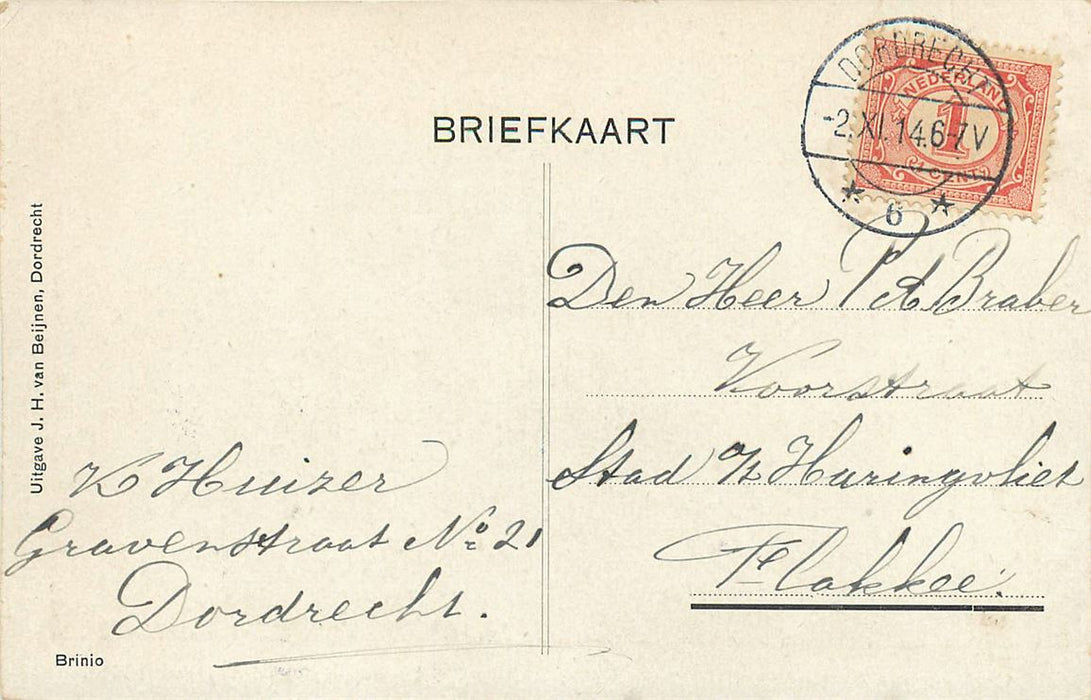 BRIEFKAART
DORDRECHT
-2.XI.14.6-7V
* 6 *
NEDERLAND
1
CENT
Den Heer P A Braber
Voorstraat
Stad a/h Haringvliet
Flakkee.
K Huizer
Gravenstraat No 21
Dordrecht.
Uitgave J. H. van Beijnen, Dordrecht
Brinio